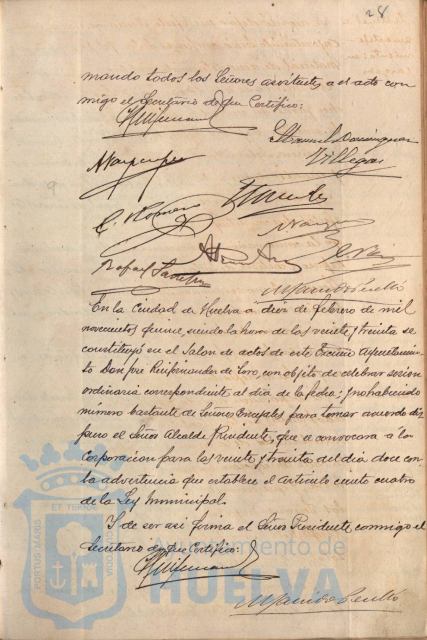 28
mando todos los Señores asistentes a el acto con
migo el Secretario de que Certifico:
Manuel Dominguez
Villegas
C. Romero
Rafael
En la Ciudad de Huelva a diez de febrero de mil
novecientos quince, siendo la hora de las veinte y treinta se
constituyó en el Salon de actos de este Excmo Ayuntamien
to Don José Ruifernandez de Toro, con objeto de celebrar sesion
ordinaria correspondiente al dia de la fecha; y no habiendo
número bastante de Señores Concejales para tomar acuerdo dis
puso el Señor Alcalde Presidente, que se convocara á la
Corporacion para las veinte y treinta del dia doce con
la advertencia que establece el articulo ciento cuatro
de la Ley Municipal.
Y de ser así firma el Señor Presidente conmigo el
Secretario de que Certifico:
PORTUS MARIS ET TERRAE CUSTODIA
Ayuntamiento de
HUELVA